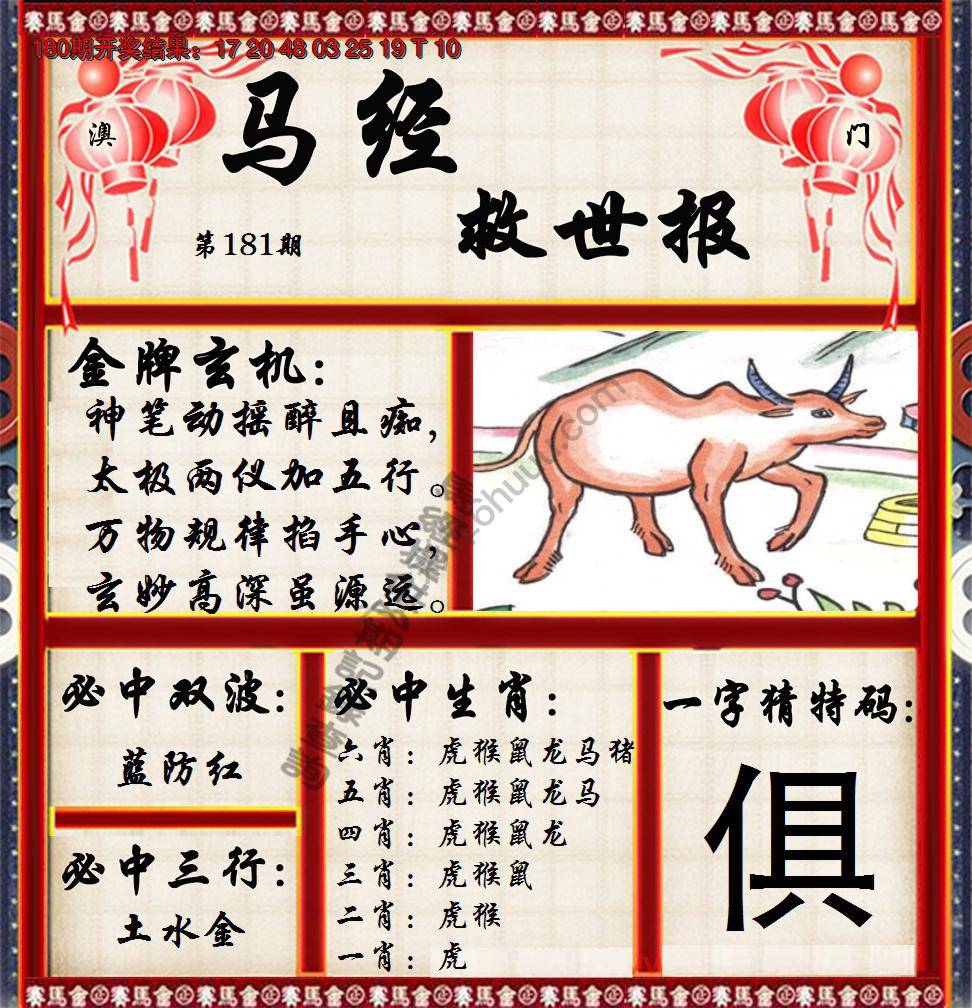 180期开奖结果：17 20 48 03 25 19 T 10
澳
门
马经
救世报
第181期
金牌玄机：
神笔动摇醉且痴，
太极两仪加五行。
万物规律掐手心，
玄妙高深虽源远。
必中双波：
蓝防红
必中三行：
土水金
必中生肖：
六肖：虎猴鼠龙马猪
五肖：虎猴鼠龙马
四肖：虎猴鼠龙
三肖：虎猴鼠
二肖：虎猴
一肖：虎
一字猜特码：
俱